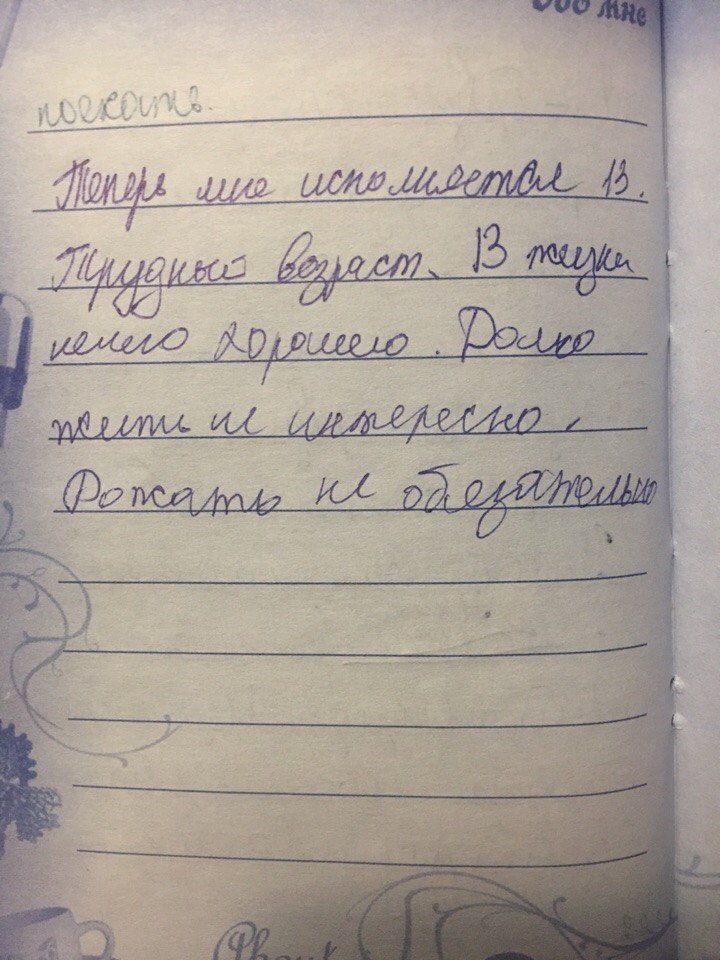 Обо мне
поехать.
Теперь мне исполняется 13.
Трудный возраст. В жизни
нечего хорошего. Долго
жить не интересно.
Рожать не обезательно
About